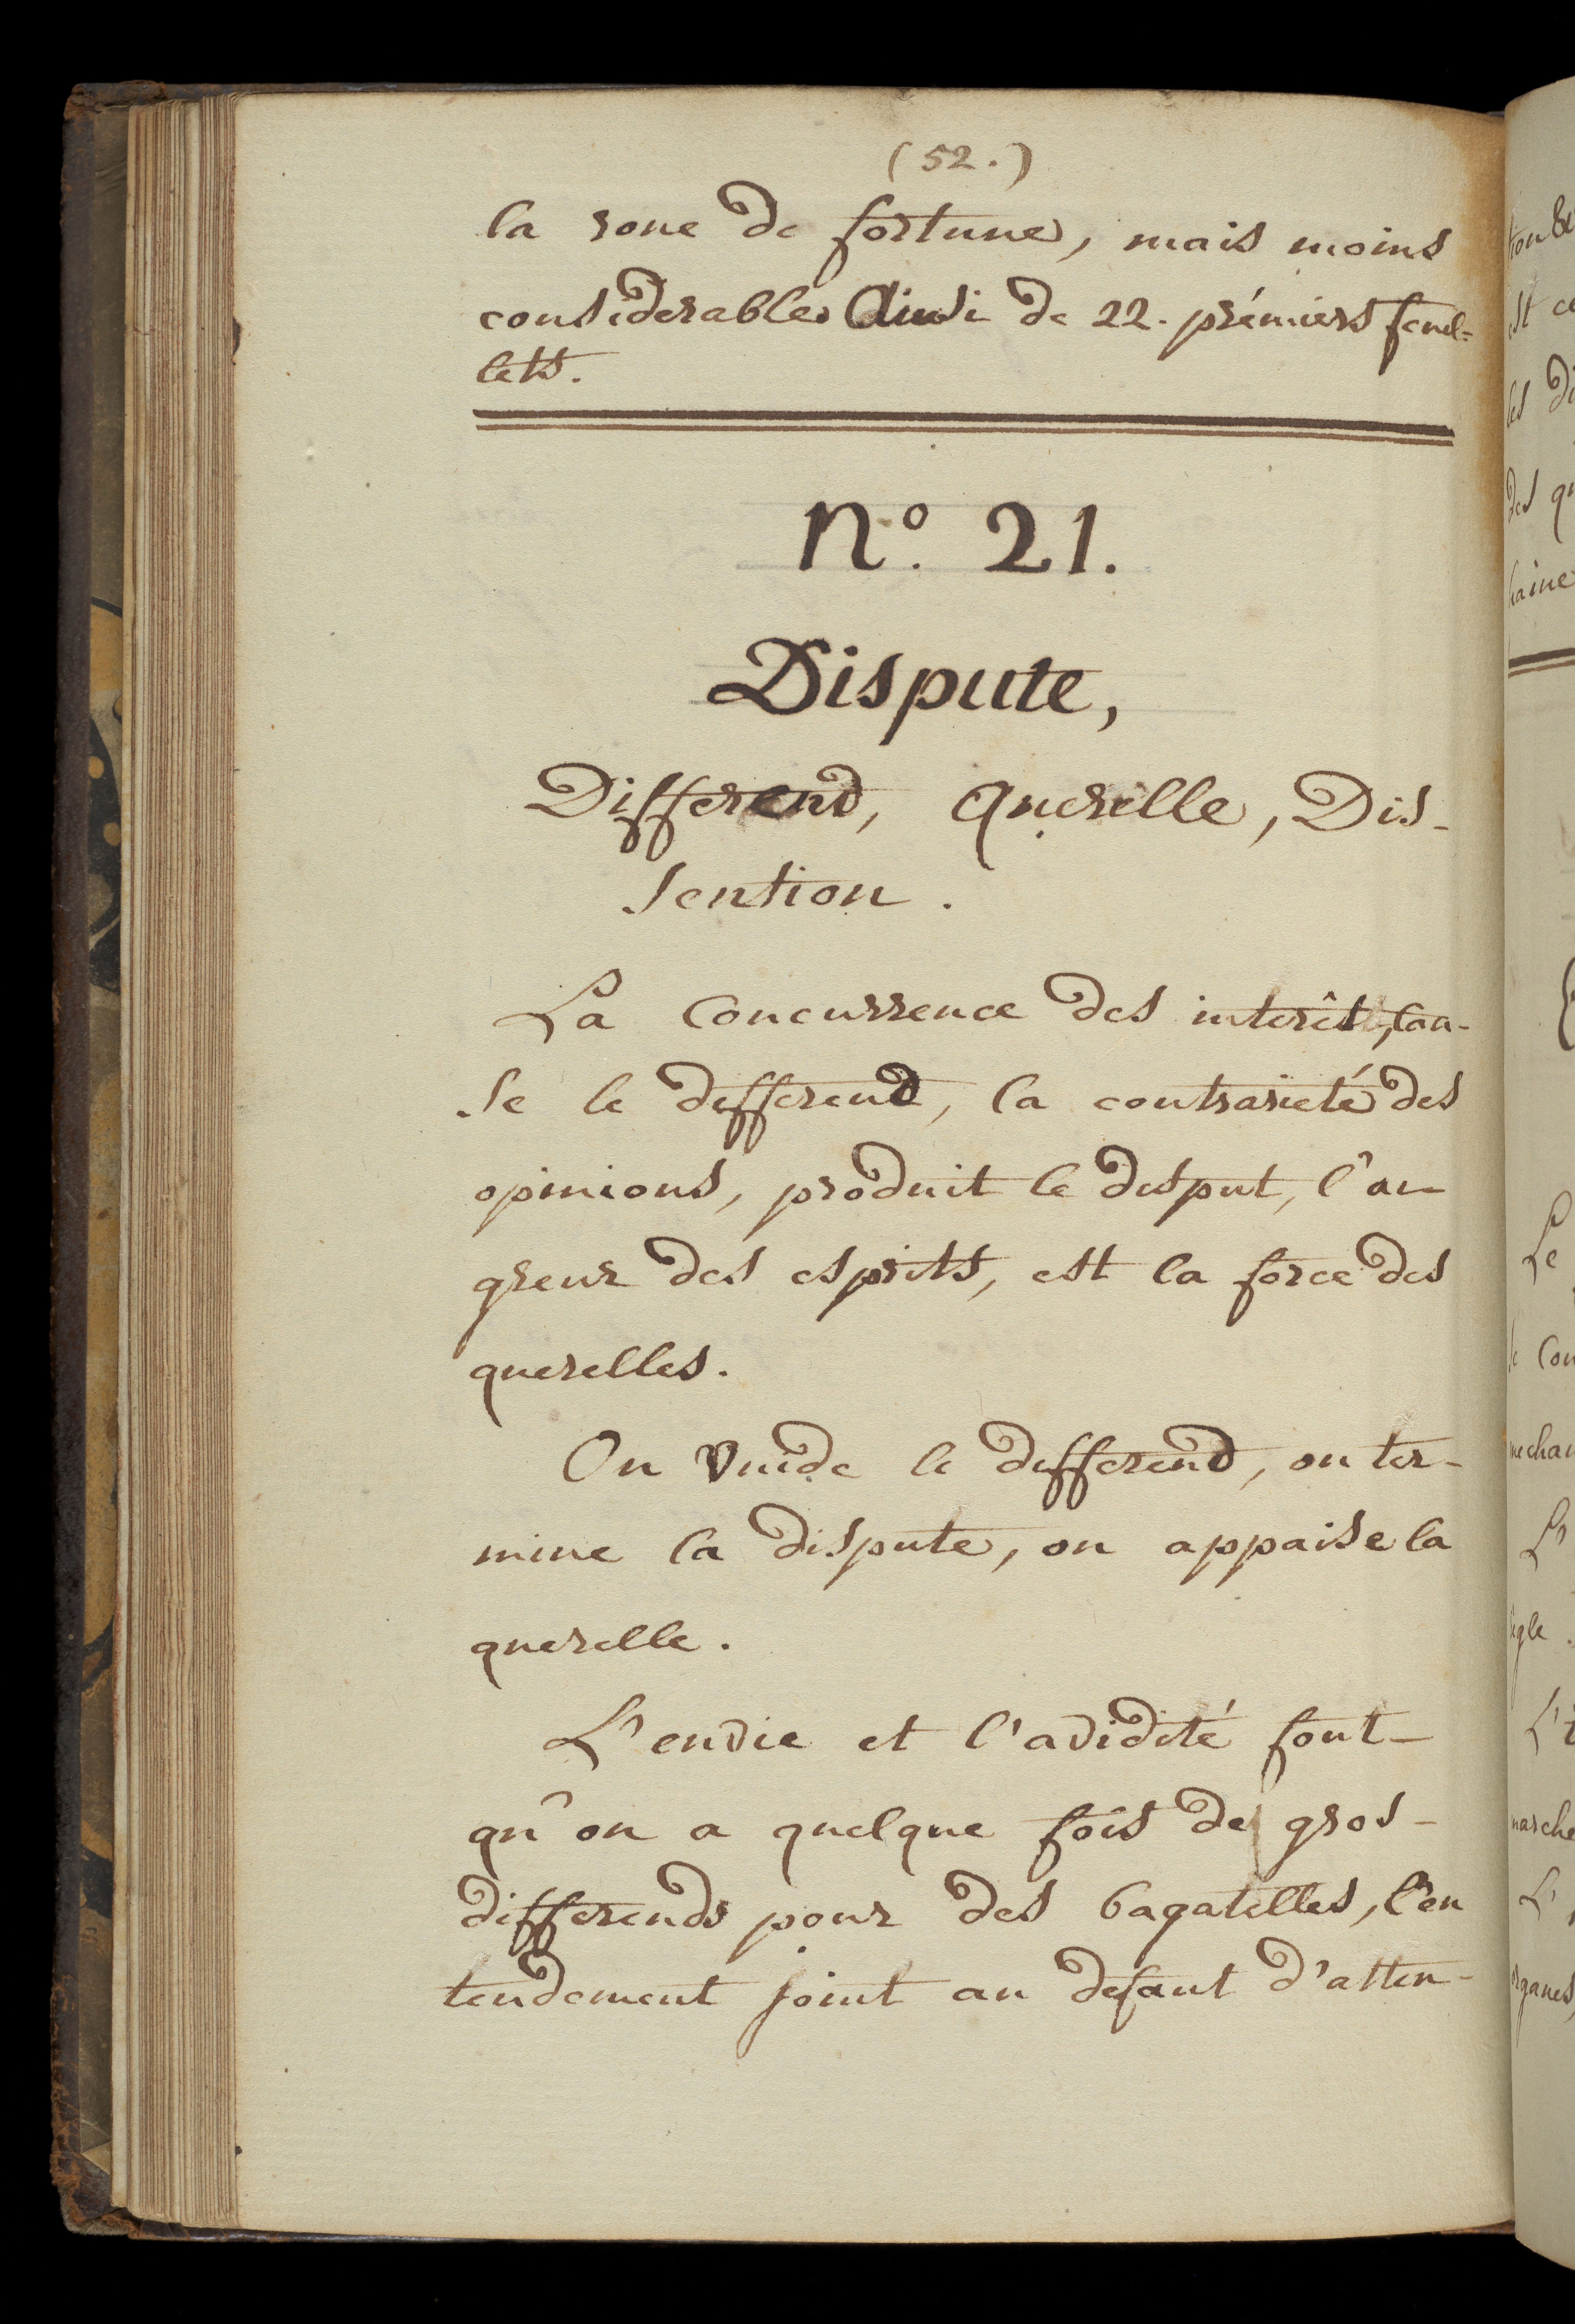 (52.)
la roue de fortune, mais moins
considerable. Ainsi de 22. prémiers feuil=
lets.
N.º 21.
Dispute,
Differend, Querelle, Dis-
sention.
La Concurrence des interêts, cau-
se le differend, la contrarieté des
opinions, produit le disput, l'ai-
greur des esprits, est la force des
querelles.
On vuide le differend, on ter-
mine la dispute, on appaise la
querelle.
L'envie et l'avidité font
qu'on a quelque fois de gros
differends pour des bagatelles, l'en
tendement joint au defaut d'atten-